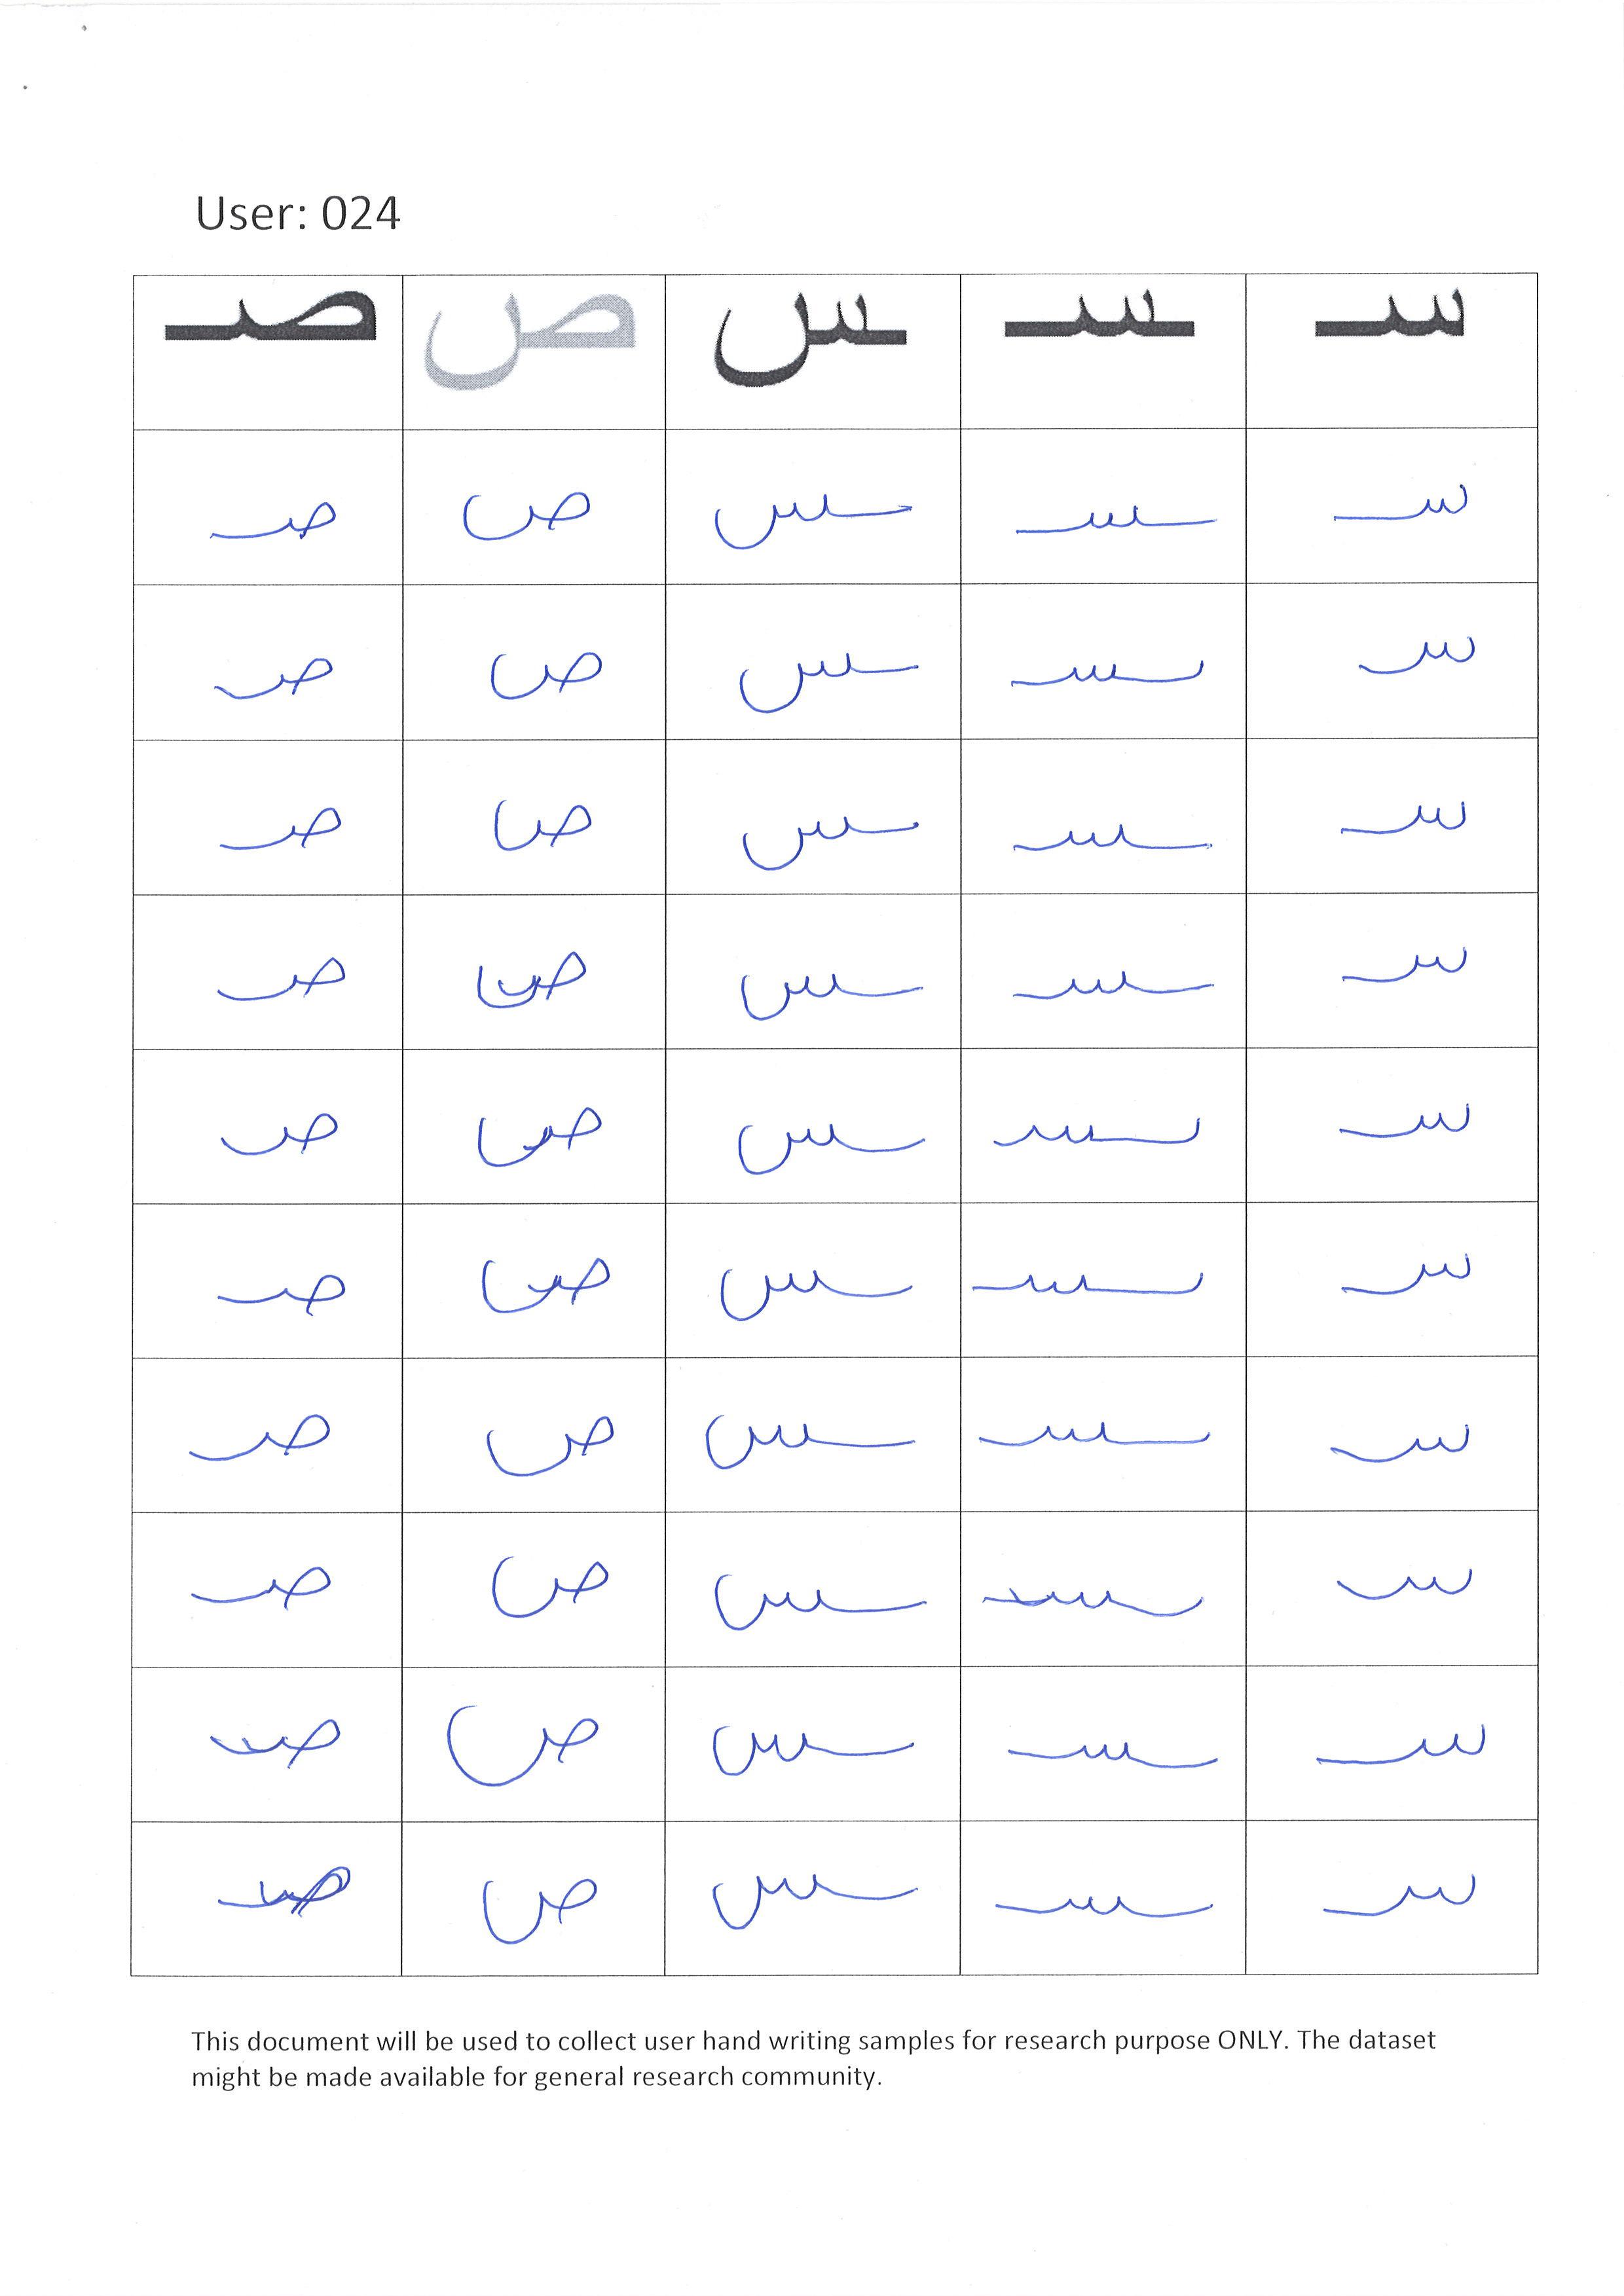 User: 024
صـ ص ـس ـسـ سـ
صـ ص ـس ـسـ سـ
صـ ص ـس ـسـ سـ
صـ ص ـس ـسـ سـ
صـ ص ـس ـسـ سـ
صـ ص ـس ـسـ سـ
صـ ص ـس ـسـ سـ
صـ ص ـس ـسـ سـ
صـ ص ـس ـسـ سـ
صـ ص ـس ـسـ سـ
صـ ص ـس ـسـ سـ
This document will be used to collect user hand writing samples for research purpose ONLY. The dataset
might be made available for general research community.